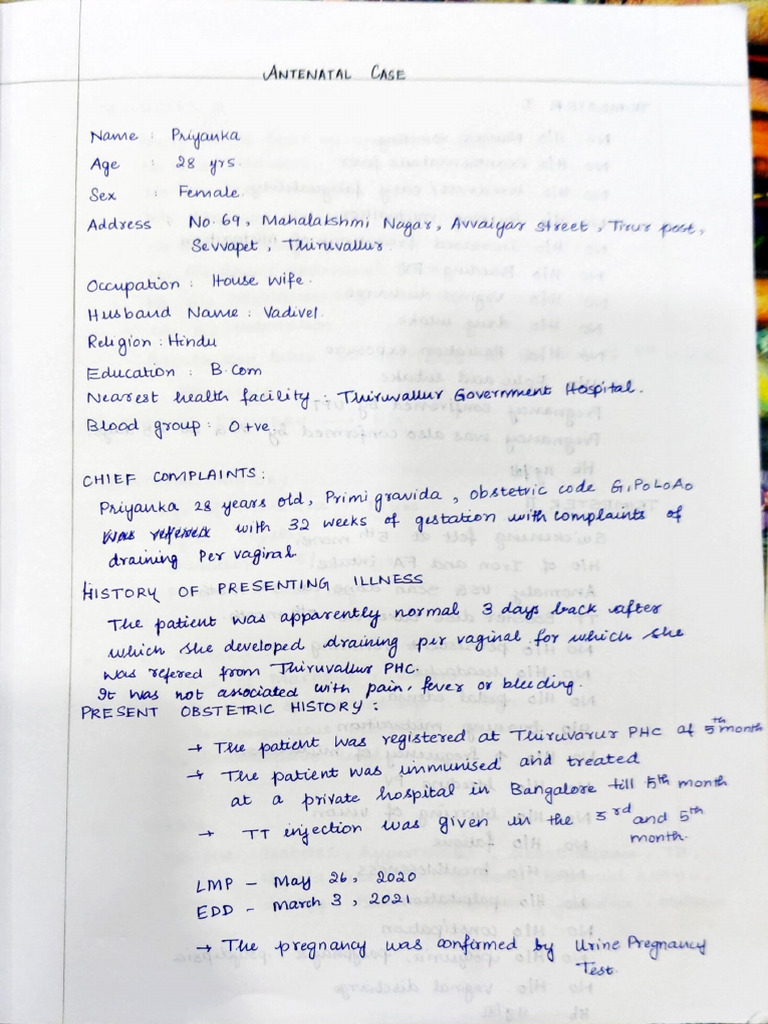 ANTENATAL CASE
Name : Priyanka
Age : 28 yrs.
Sex : Female.
Address : No. 69, Mahalakshmi Nagar, Avvaiyar street, Tirur post,
Sevvapet, Thiruvallur.
Occupation : House wife.
Husband Name : Vadivel.
Religion : Hindu
Education : B.Com
Nearest health facility : Thiruvallur Government Hospital.
Blood group : O +ve.
CHIEF COMPLAINTS :
Priyanka 28 years old, Primi gravida, obstetric code G1P0L0A0
was with 32 weeks of gestation with complaints of
draining per vaginal.
HISTORY OF PRESENTING ILLNESS
The patient was apparently normal 3 days back after
which she developed draining per vaginal for which she
was refered from Thiruvallur PHC.
It was not associated with pain, fever or bleeding.
PRESENT OBSTETRIC HISTORY :
→ The patient was registered at Thiruvarur PHC at 5th month
→ The patient was immunised and treated
at a private hospital in Bangalore till 5th month
→ TT injection was given in the 3rd and 5th
month.
LMP - May 26, 2020
EDD - March 3, 2021
→ The pregnancy was confirmed by Urine Pregnancy
Test.